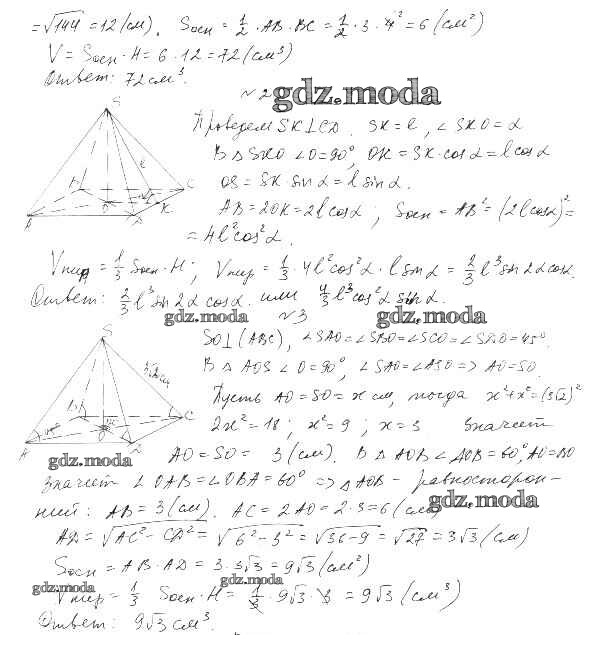 = √144 = 12 (см). Sосн = 1/2 · AB · BC = 1/2 · 3 · 4² = 6 (см²)
V = Sосн · H = 6 · 12 = 72 (см³)
Ответ: 72 см³.
№2 gdz.moda
Проведем SK⊥CD. SK = l, ∠SKO = α
В ΔSKO ∠O = 90°, OK = SK · cos α = l cos α
OS = SK · sin α = l sin α.
AB = 2OK = 2l cos α; Sосн = AB² = (2l cos α)² =
= 4l² cos² α.
Vпир = 1/3 Sосн · H; Vпир = 1/3 · 4l² cos² α · l sin α = 2/3 l³ sin 2α cos α.
Ответ: 2/3 l³ sin 2α cos α. или 4/3 l³ cos² α sin α.
gdz.moda №3 gdz.moda
SO⊥(ABC), ∠SAO = ∠SBO = ∠SCO = ∠SDO = 45°.
В ΔAOS ∠O = 90°, ∠SAO = ∠ASO => AO = SO.
Пусть AO = SO = x см, тогда x² + x² = (3√2)²
2x² = 18; x² = 9; x = 3 Значит
gdz.moda AO = SO = 3 (см). В ΔAOB ∠AOB = 60°, AO = BO
Значит ∠OAB = ∠OBA = 60° => ΔAOB – равносторон-
ний: AB = 3 (см). AC = 2AO = 2 · 3 = 6 (см) gdz.moda
AD = √AC² – CD² = √6² – 3² = √36 – 9 = √27 = 3√3 (см)
Sосн = AB · AD = 3 · 3√3 = 9√3 (см²)
gdz.moda gdz.moda
Vпир = 1/3 Sосн · H = 1/3 · 9√3 · 3 = 9√3 (см³)
Ответ: 9√3 см³.
S
l
B
C
O
K
A
D
S
3√2 см
B
C
O
A
D